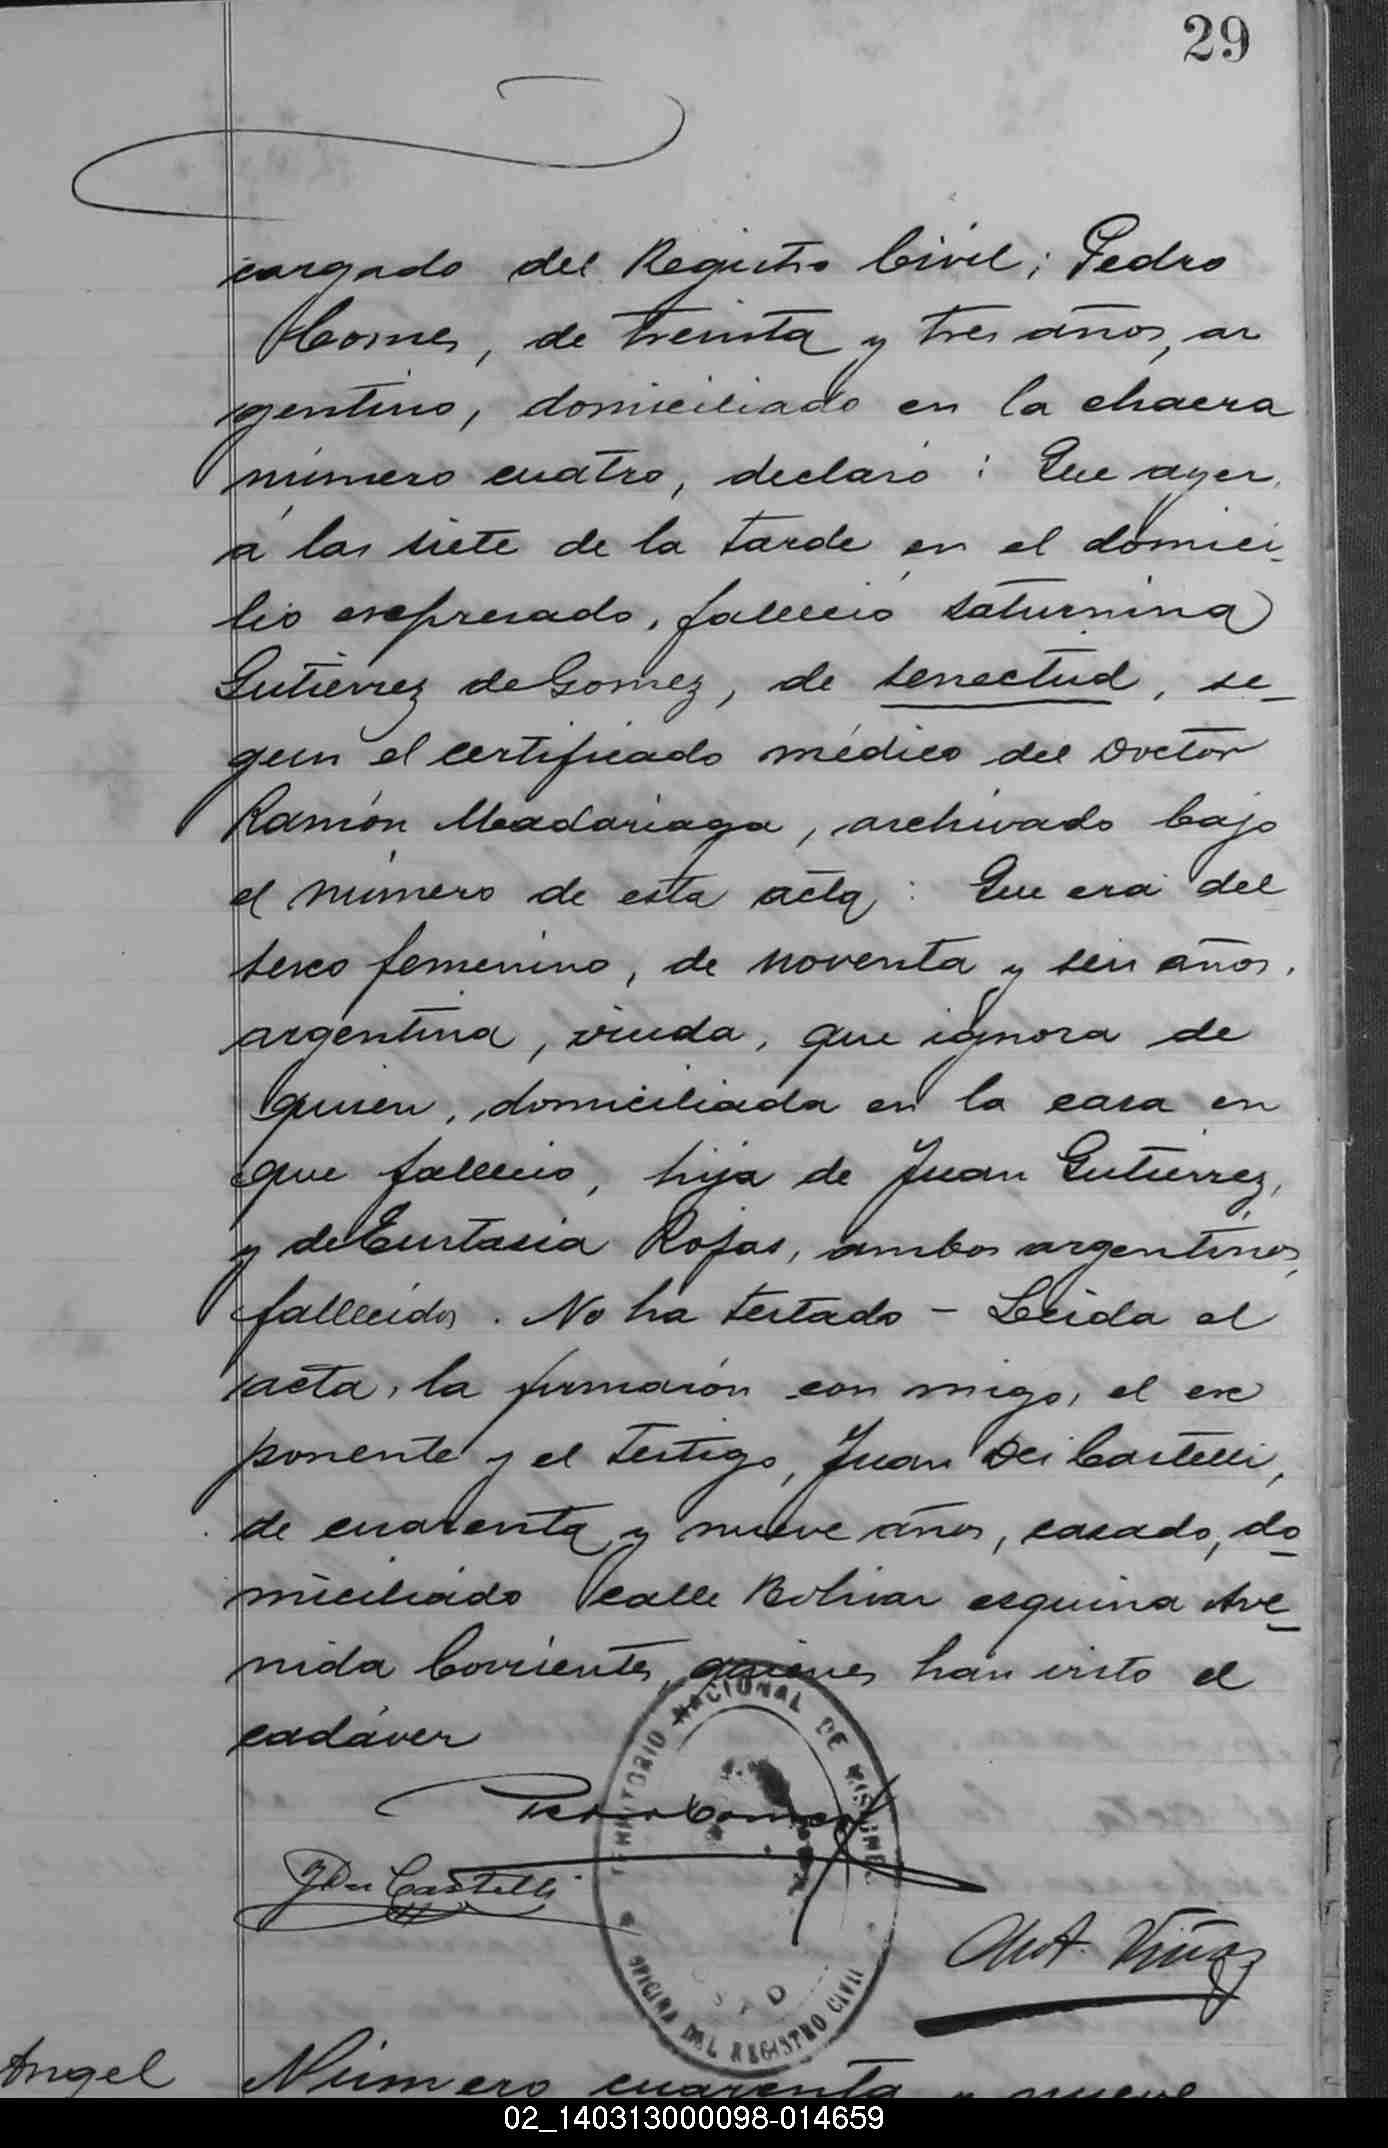 29
cargado del Registro Civil; Pedro
Comes, de treinta y tres años, ar
gentino, domiciliado en la chacra
número cuatro, declaró: Que ayer,
á las siete de la tarde en el domici_
lio expresado, falleció Saturnina
Gutierrez de Gomez, de senectud, se_
gun el certificado médico del Doctor
Ramón Madariaga, archivado bajo
el número de esta acta: Que era del
sexo femenino, de noventa y seis años,
argentina, viuda, que ignora de
quien, domiciliada en la casa en
que falleció, hija de Juan Gutierrez,
y de Eustasia Rojas, ambos argentinos,
fallecidos. No ha testado - Leida el
acta, la firmarón con migo, el ex
ponente y el testigo, Juan Dei Castelli,
de cuarenta y nueve años, casado, do_
miciliado calle Bolivar esquina Ave_
nida Corrientes, quienes han visto el
cadáver
TERRITORIO NACIONAL DE MISIONES
Pedro Comes
J Dei Castelli
Viñas
OFICINA DEL REGISTRO CIVIL
Angel
Número cuarenta y nueve
02_140313000098-014659